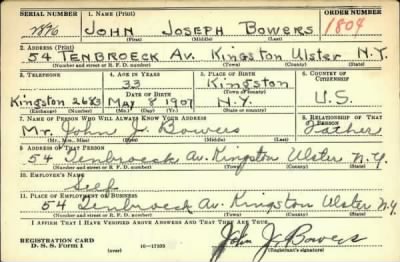 SERIAL NUMBER 1. NAME (Print) ORDER NUMBER
2896 JOHN JOSEPH BOWERS 1804
(First) (Middle) (Last)
2. ADDRESS (Print)
54 TENBROECK AV. KINGSTON ULSTER N.Y.
(Number and street or R. F. D. number) (Town) (County) (State)
3. TELEPHONE 4. AGE IN YEARS 5. PLACE OF BIRTH 6. COUNTRY OF CITIZENSHIP
33 Kingston
DATE OF BIRTH (Town or county)
Kingston MAY 8 1907 N.Y. U.S.
(Exchange) (Number) (Mo.) (Day) (Yr.) (State or country)
7. NAME OF PERSON WHO WILL ALWAYS KNOW YOUR ADDRESS 8. RELATIONSHIP OF THAT PERSON
Mr. John J. Bowers Father
(Mr., Mrs., Miss) (First) (Middle) (Last)
9. ADDRESS OF THAT PERSON
54 Tenbroeck Av. Kingston Ulster N.Y.
(Number and street or R. F. D. number) (Town) (County) (State)
10. EMPLOYER'S NAME
Self
11. PLACE OF EMPLOYMENT OR BUSINESS
54 Tenbroeck Av. Kingston Ulster N.Y.
(Number and street or R. F. D. number) (Town) (County) (State)
I AFFIRM THAT I HAVE VERIFIED ABOVE ANSWERS AND THAT THEY ARE TRUE.
REGISTRATION CARD
D. S. S. Form 1 (over) 16—17105 John J. Bowers
(Registrant's signature)